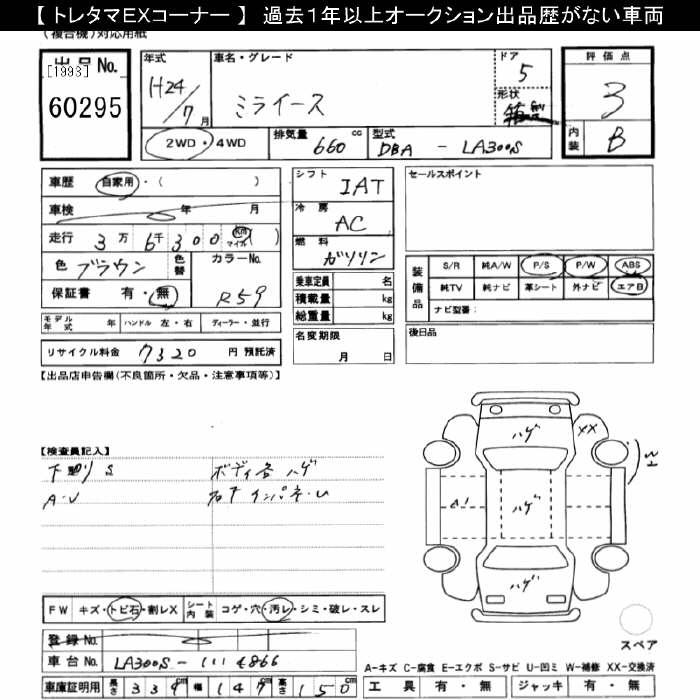 【 トレタマEXコーナー 】 過去1年以上オークション出品歴がない車両
(複合機)対応用紙
出品No.
[1993]
60295
年式
H24/7月
車名・グレード
ミライース
ドア
5
形状
箱
評価点
3
内装
B
2WD・4WD
排気量
660 cc
型式
DBA - LA300S
車歴 自家用・( )
車検 年 月
走行 3万 6千 300 Km マイル ( )
色 ブラウン
色替
カラーNo.
R59
保証書 有・無
モデル年式 年 ハンドル 左・右 ディーラー・並行
リサイクル料金 7320 円 預託済
シフト
IAT
冷房
AC
燃料
ガソリン
乗車定員 名
積載量 kg
総重量 kg
名変期限
月 日
セールスポイント
装備品
S/R 純A/W P/S P/W ABS
純TV 純ナビ 革シート 外ナビ エアB
ナビ型番:
後日品
【出品店申告欄(不良箇所・欠品・注意事項等)】
【検査員記入】
下廻り S
ボディ各ハゲ
A・U
ハゲ
XX
A1
ハゲ
ハゲ
FW キズ・トビ石・割レX シート内装 コゲ・穴・汚レ・シミ・破レ・スレ
登録No.
車台No. LA300S-1114866
車庫証明用 長さ 339cm 幅 147cm 高さ 150cm
スペア
A-キズ C-腐食 E-エクボ S-サビ U-凹ミ W-補修 XX-交換済
工具 有・無 ジャッキ 有・無